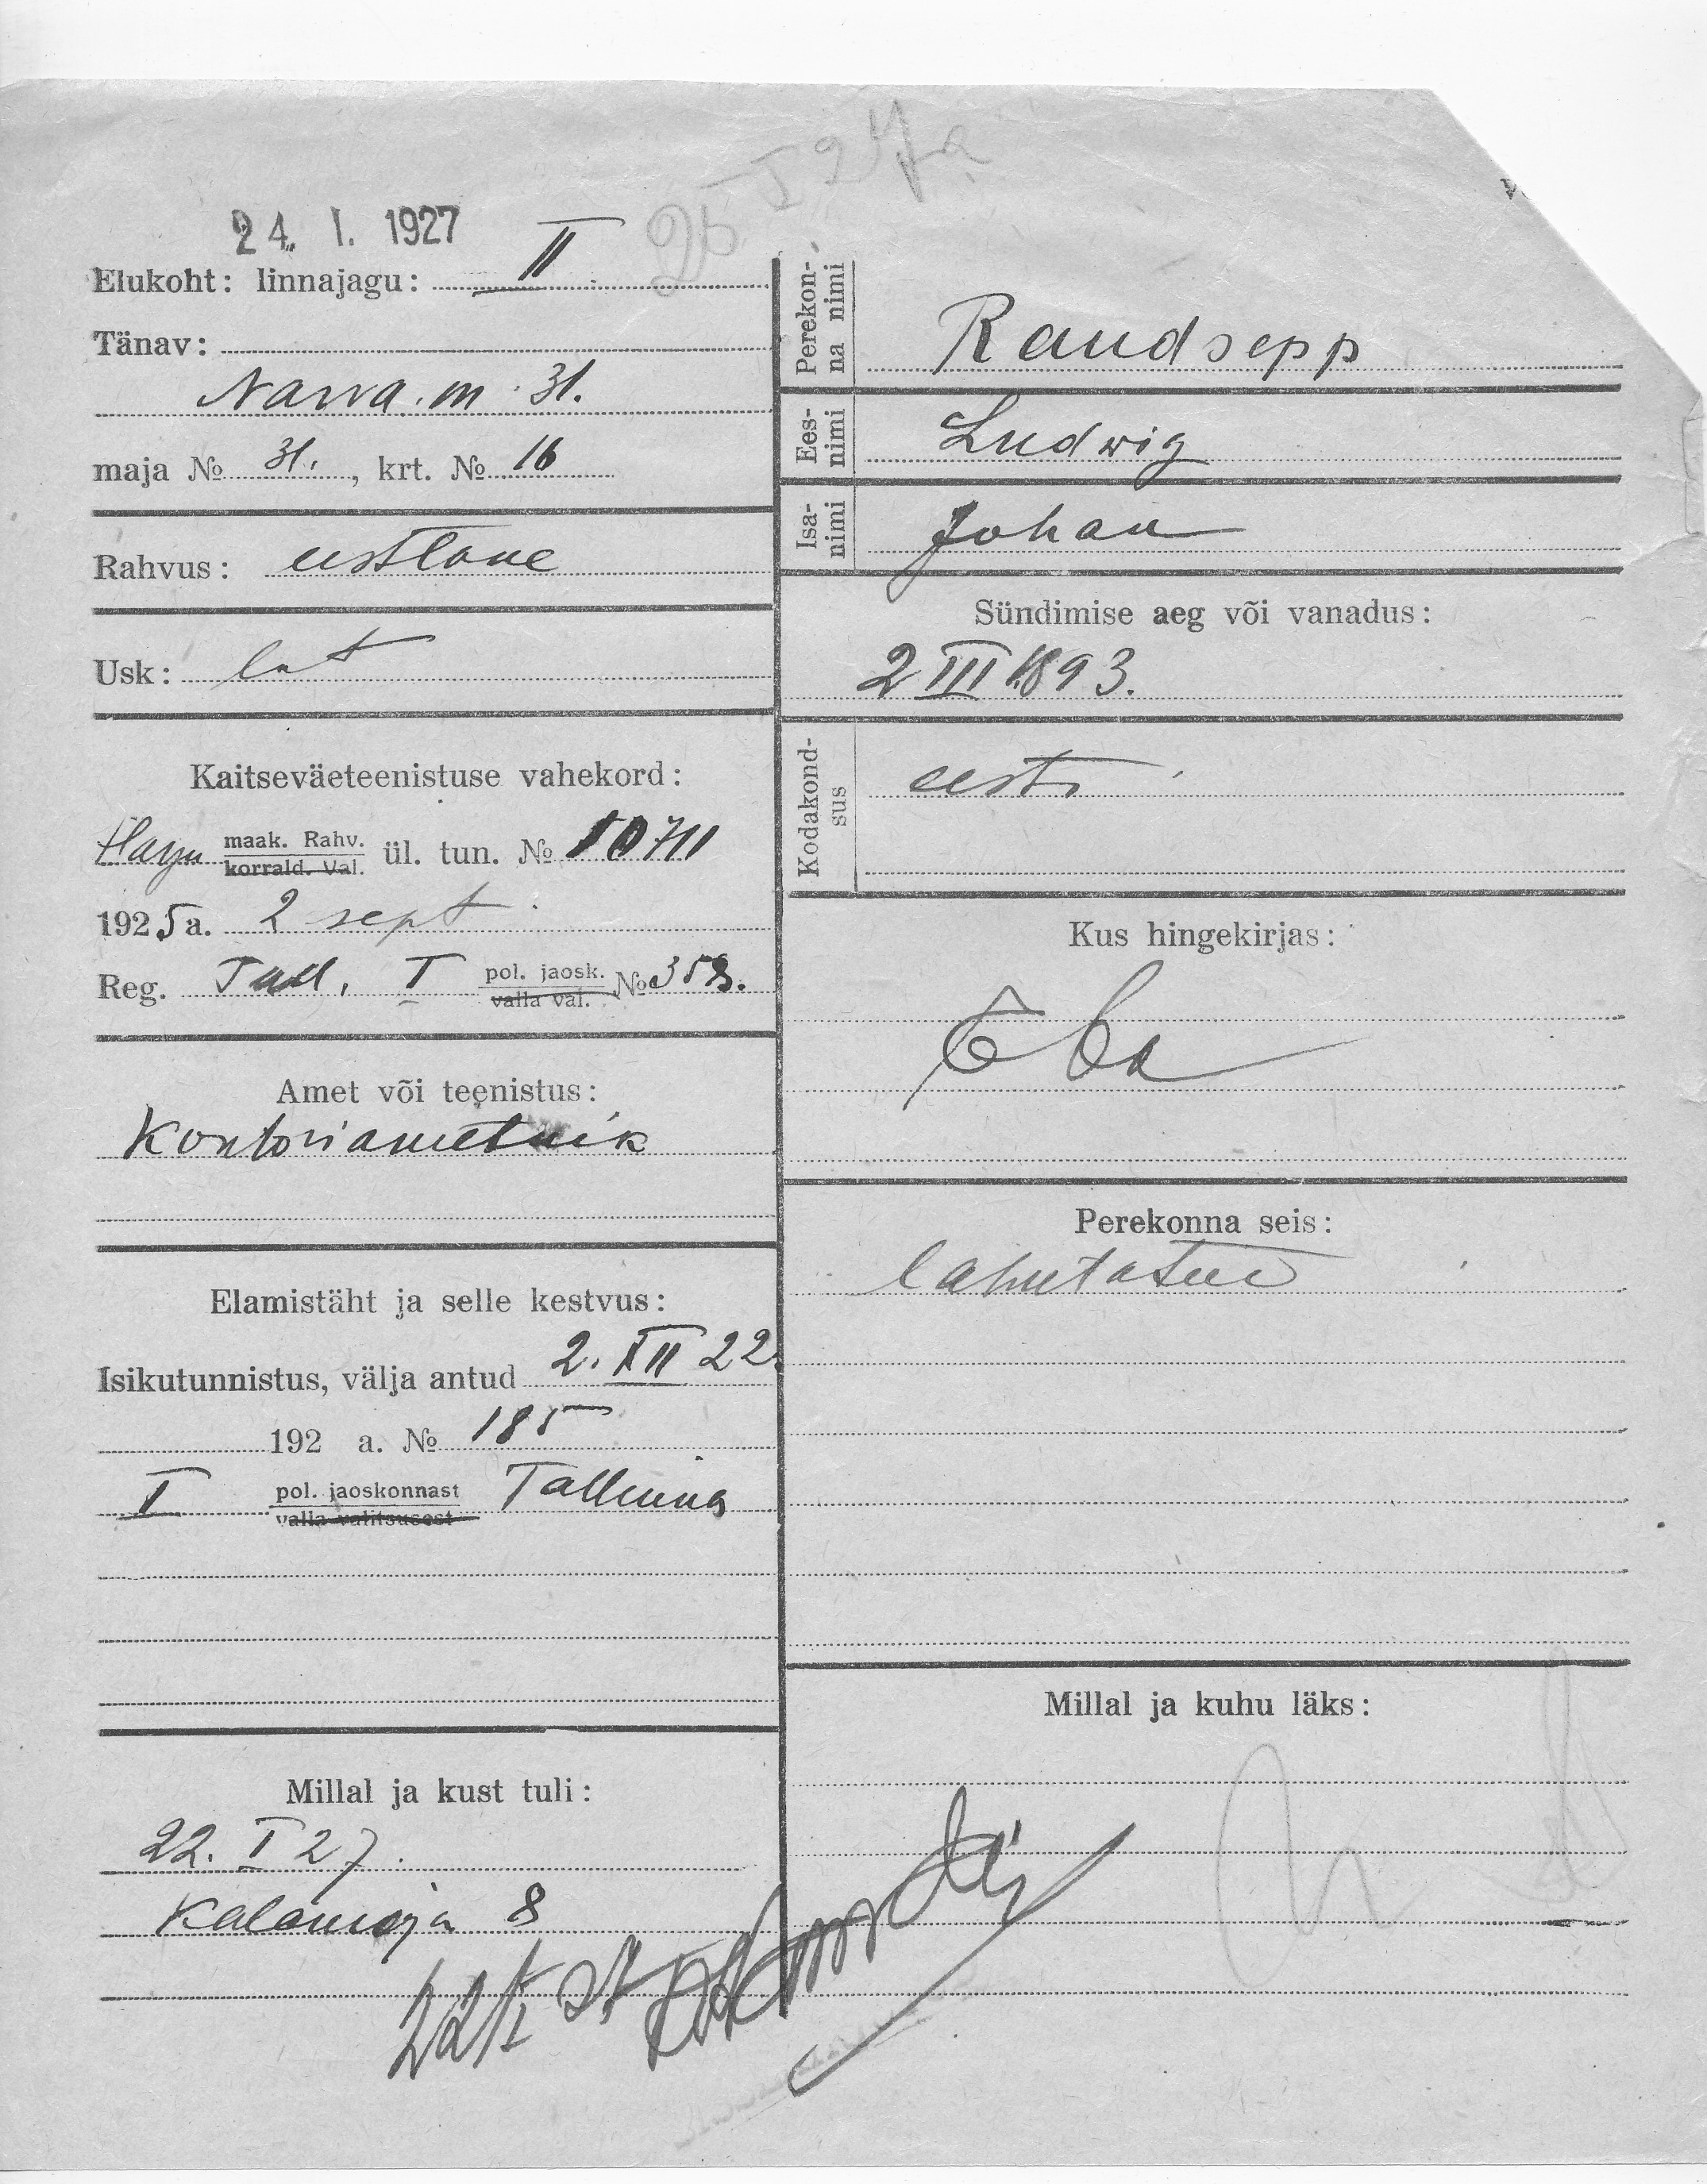 24. I. 1927
Elukoht: linnajagu: II
Tänav:
Narva. m. 31.
maja № 31., krt. № 16
Rahvus: eestlane
Usk: lut
Kaitseväeteenistuse vahekord:
Harju maak. Rahv. korrald. Val. ül. tun. № 10711
1925 a. 2 sept.
Reg. Tall. I pol. jaosk. valla val. № 358.
Amet või teenistus:
Kontoriametnik
Elamistäht ja selle kestvus:
Isikutunnistus, välja antud 2. XII 22.
192 a. № 185
I pol. jaoskonnast valla valitsusest Tallinna
Millal ja kust tuli:
22. I 27.
Kalamaja 8
Perekon-
na nimi
Raudsepp
Ees-
nimi
Ludwig
Isa-
nimi
Johan
Sündimise aeg või vanadus:
2 III 1893.
Kodakond-
sus
eesti
Kus hingekirjas:
Perekonna seis:
lahutatud
Millal ja kuhu läks: